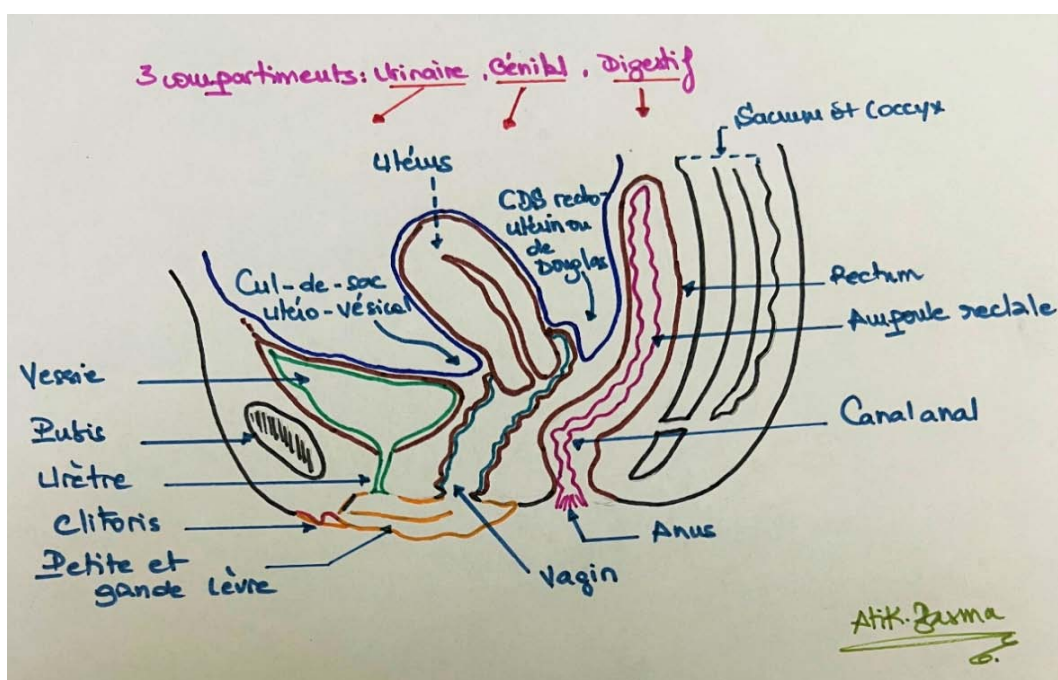 3 compartiments: Urinaire, Génital, Digestif
Sacrum et Coccyx
Utérus
CDS recto-
utérin ou
de
Douglas
Cul-de-sac
utéro-vésical
Rectum
Ampoule rectale
Vessie
Pubis
Canal anal
Urètre
Clitoris
Anus
Petite et
gande lèvre
Vagin
Atik.Basma